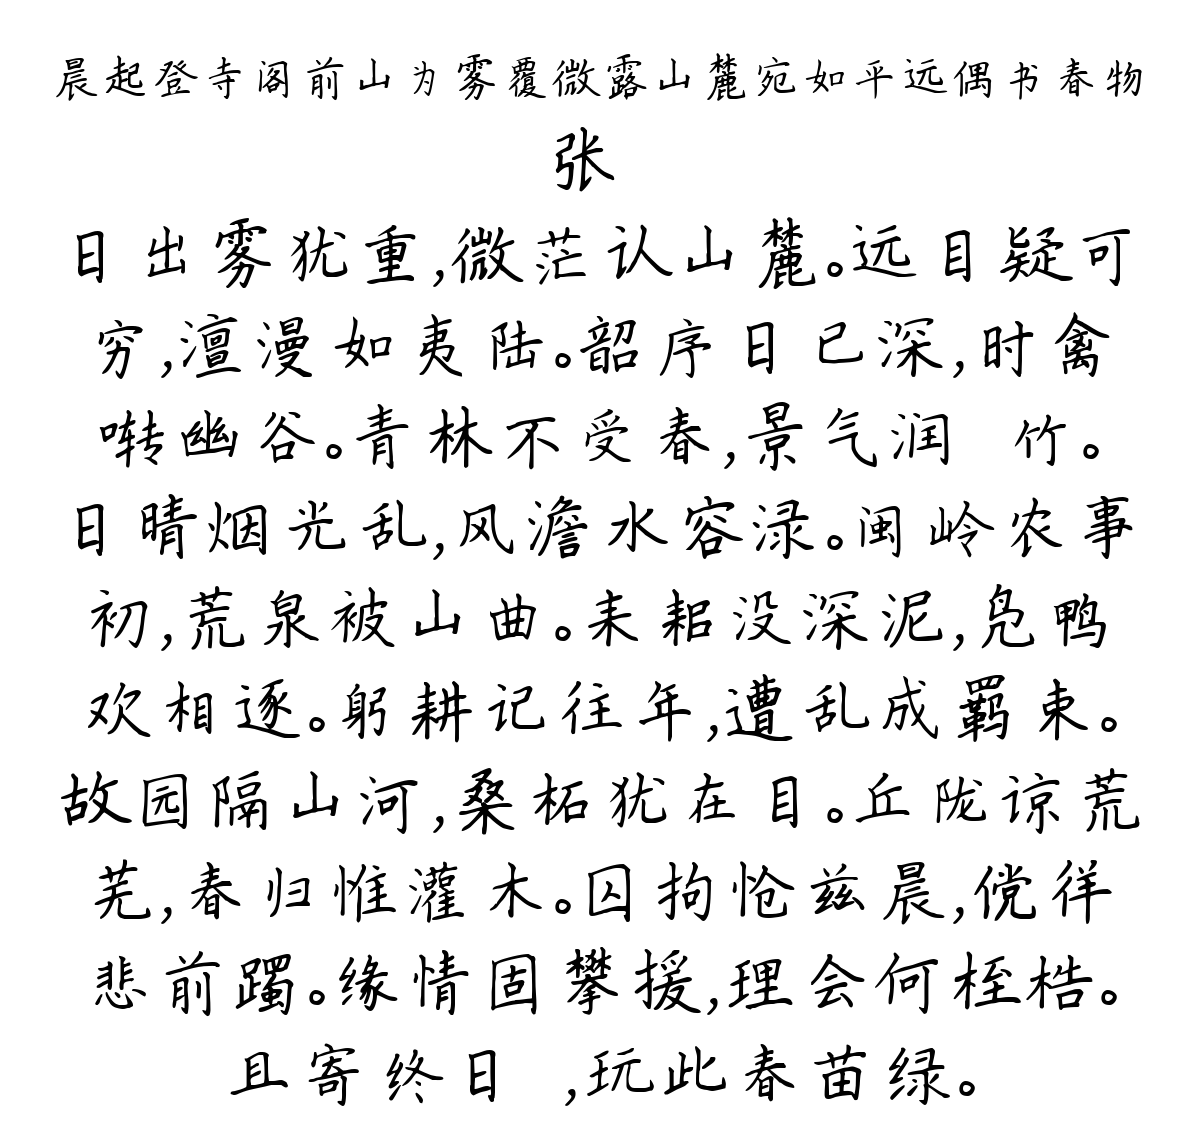 晨起登寺阁前山为雾覆微露山麓宛如平远偶书春物
张
日出雾犹重,微茫认山麓。远目疑可
穷,澶漫如夷陆。韶序日已深,时禽
啭幽谷。青林不受春,景气润 竹。
日晴烟光乱,风澹水容渌。闽岭农事
初,荒泉被山曲。耒耜没深泥,凫鸭
欢相逐。躬耕记往年,遭乱成羁束。
故园隔山河,桑柘犹在目。丘陇谅荒
芜,春归惟灌木。囚拘怆兹晨,傥徉
悲前躅。缘情固攀援,理会何桎梏。
且寄终日 ,玩此春苗绿。